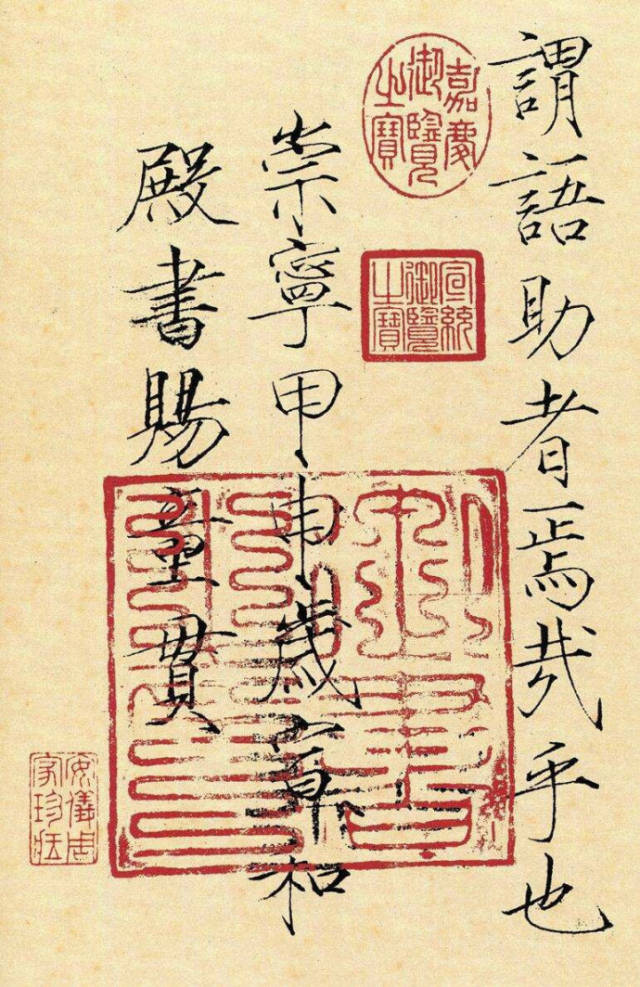 謂語助者焉哉乎也
崇寧甲申歲宣和
殿書賜童貫
嘉慶御覽之寶
宣統御覽之寶
安儀周家珍藏